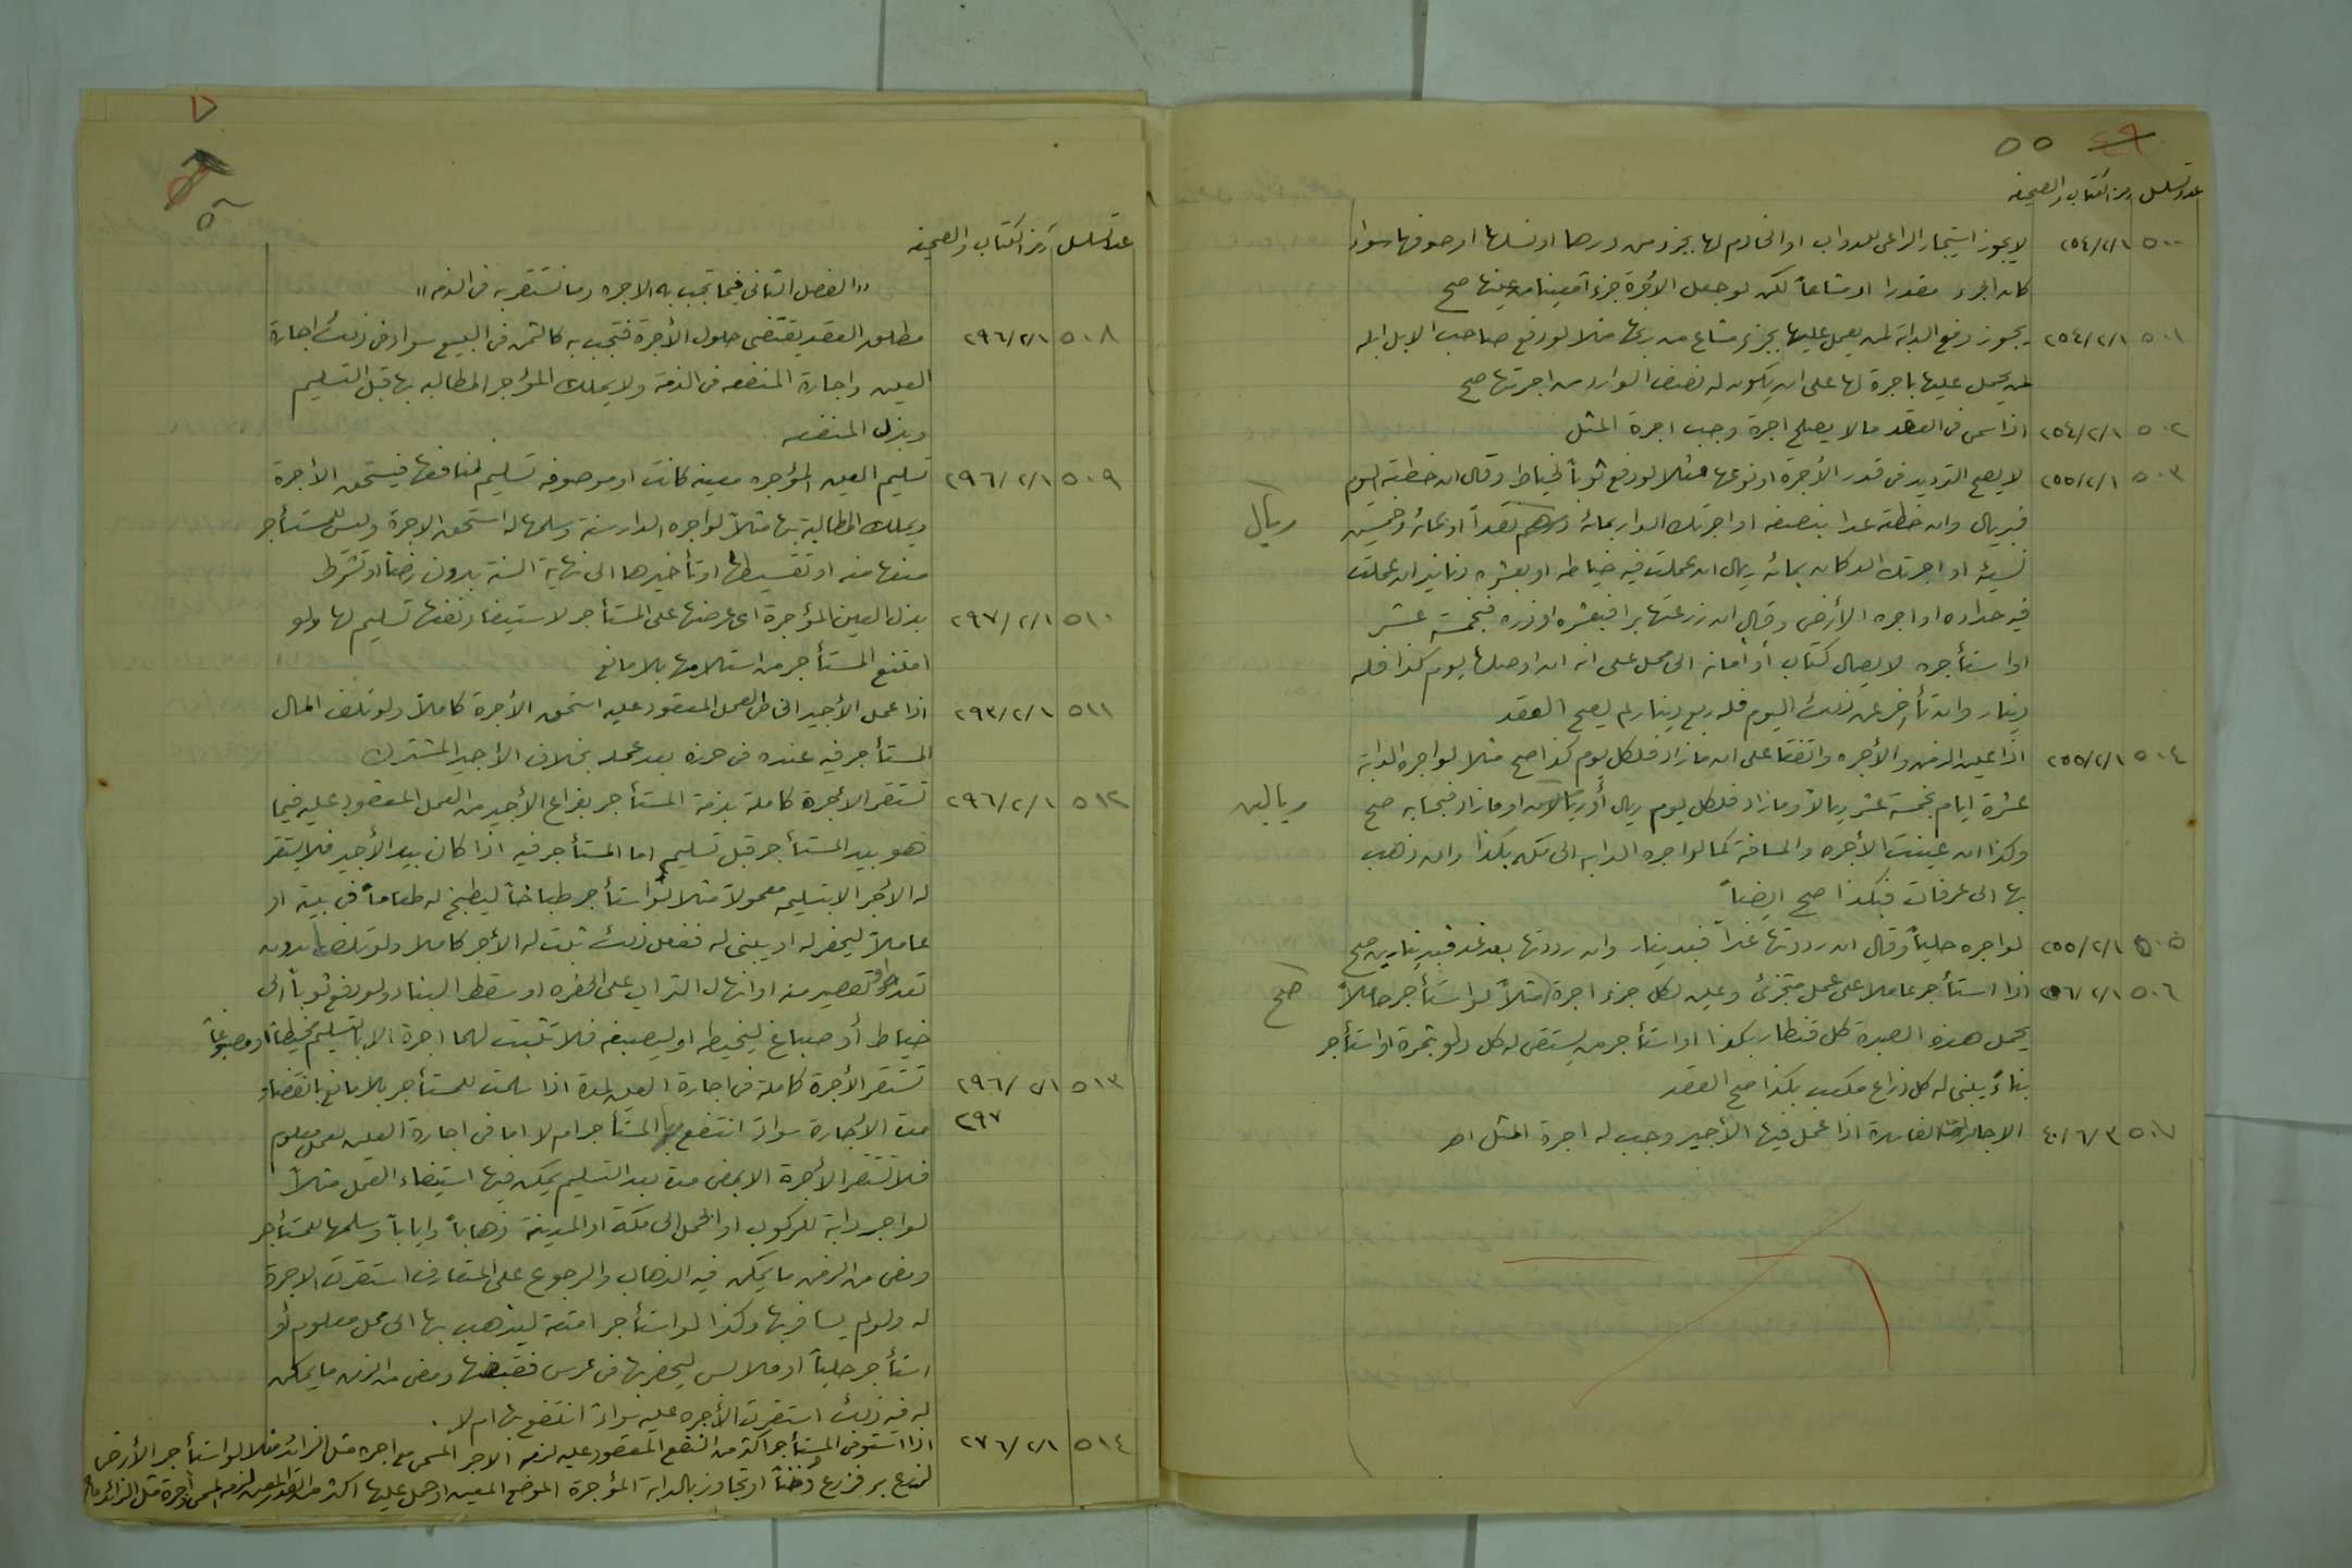 ٥٥ ٤٩
عدد تسلسل رمز الكتاب والصحيفه
٥٠٠ ٢٥٤/٢/١ لا يجوز استيجار الراعى للدواب او الخادم لها بجزء من درها او نسلها او صوفها سواء
كان الجزء مقدرا او مشاعاً لكن لو جعل الأجرة جزءاً معينا من عينها صح
٥٠١ ٢٥٤/٢/١ يجوز دفع الدابة لمن يعمل عليها بجزء مشاع من ربحها مثلا لو دفع صاحب الابل ابله
لمن يحمل عليها باجرة لها على ان يكون له نصف الوارد من اجرتها صح
٥٠٢ ٢٥٤/٢/١ اذا سمى فى العقد مالا يصلح اجرة وجب اجرة المثل
٥٠٣ ٢٥٥/٢/١ لا يصح الترديد فى قدر الأجرة او نوعها مثلا لو دفع ثوباً لخياط وقال ان خطته اليوم
فبريال وان خطته غدا بنصفه او اجرتك الدار بمائة درهم نقداً او بمائة وخمسين ريال
نسيئة او اجرتك الدكان بمائة ريال ان عملت فيه خياطه او بعشرة دنانير ان عملت
فيه حداده او اجره الأرض وقال ان زرعتها برا فبعشره او ذره فبخمسة عشر
او استأجره لايصال كتاب أو أمانة الى محل على انه ان اوصلها يوم كذا فله
دينار وان تأخر عن ذلك اليوم فله ربع دينار لم يصح العقد
٥٠٤ ٢٥٥/٢/١ اذا عين الزمن والأجره واتفقا على ان ما زاد فلكل يوم كذا صح مثلا لو اجره الدابة
عشرة ايام بخمسة عشر ريالاً وما زاد فلكل يوم ريال أو ريالان او ما زاد فبحسابه صح ريالين
وكذا ان عينت الأجره والمسافة كما لو اجره الدابه الى مكه بكذا وان ذهب
بها الى عرفات فبكذا صح ايضاً
٥٠٥ ٢٥٥/٢/١ لو اجره حلياً وقال ان رددتها غداً فبدينار وان رددتها بعد غد فبدينارين صح
٥٠٦ ٢٥٦/٢/١ اذا استأجر عاملا على عمل متجزئ وعين لكل جزء اجرة مثلاً لو استأجر حاملاً صح
يحمل هذه الصبرة كل قنطار بكذا او استأجر من يستقى له كل دلو بتمرة او استأجر
بناءً يبنى له كل ذراع مكعب بكذا صح العقد
٥٠٧ ٤٠١/٦/٣ الاجارة الفاسدة اذا عمل فيها الأجير وجب له اجرة المثل اهـ
عدد تسلسل رمز الكتاب والصحيفه
"الفصل الثانى فيما تجب به الاجره وما تستقر به فى الذمه"
٥٠٨ ٢٩٦/٢/١ مطلق العقد يقتضى حلول الأجرة فتجب به كالثمن فى البيع سواء فى ذلك اجارة
العين واجارة المنفعه فى الذمة ولا يملك المؤجر المطالبه بها قبل التسليم
وبذل المنفعه
٥٠٩ ٢٩٦/٢/١ تسليم العين المؤجره معينه كانت او موصوفه تسليم لمنافعها فيستحق الأجرة
ويملك المطالبة بها مثلاً لو اجره الدار سنة وسلمها له استحق الاجرة وليس للمستأجر
منعها منه او تقسيطها او تأخيرها الى نهاية السنة بدون رضاً او شرط
٥١٠ ٢٩٧/٢/١ بذل العين المؤجرة اى عرضها على المستأجر لاستيفاء نفعها تسليم لها ولو
امتنع المستأجر من استلامها بلا مانع
٥١١ ٢٩٣/٢/١ اذا عمل الأجير الخاص العمل المعقود عليه استحق الأجرة كاملاً ولو تلف المال
المستأجر فيه عنده فى حرزه بعد عمله بخلاف الأجير المشترك
٥١٢ ٢٩٦/٢/١ تستقر الأجرة كاملة بذمة المستأجر بفراغ الأجير من العمل المعقود عليه فيما
هو بيد المستأجر قبل تسليم اما المستأجر فيه اذا كان بيد الأجير فلا يستقر
له الأجر الا بتسليمه معمولاً مثلا لو استأجر طباخاً ليطبخ له طعاماً فى بيته او
عاملاً ليحفر له او يبنى له ففعل ذلك ثبت له الأجر كاملا ولو تلف بدون
تعد او تقصير منه او انهال التراب على الحفره او سقط البناء ولو دفع ثوباً الى
خياط أو صباغ ليخيطه او ليصبغه فلا تثبت لهما اجرة الا بالتسليم مخيطاً او مصبوغاً
٥١٣ ٢٩٦/٢/١ تستقر الأجرة كاملة فى اجارة العين لمدة اذا سلمت للمستأجر بلا مانع بانقضاء
٢٩٧ مدة الأجارة سواءً انتفع بها المستأجر ام لا اما فى اجارة العين لعمل معلوم
فلا تستقر الأجرة الا بمضى مدة بعد التسليم يمكن فيها استيفاء العمل مثلاً
لو اجر دابة للركوب او الحمل الى مكة او المدينة ذهاباً واياباً وسلمها للمستأجر
ومضى من الزمن ما يمكن فيه الذهاب والرجوع على المتعارف استقرت الاجرة
له ولو لم يسافر بها وكذا لو استأجر امتعة ليذهب بها الى محل معلوم أو
استأجر حلياً او ملابس ليحضر بها فى عرس فقبضها ومضى من الزمن ما يمكن
له فيه ذلك استقرت الأجره عليه سواءً انتفع بها ام لا .
٥١٤ ٢٧٦/٢/١ اذا استوفى المستأجر اكثر من النفع المعقود عليه لزمه الاجر المسمى مع اجره مثل الزائد مثلا لو استأجر الأرض
لزرع بر فزرع دخناً او تجاوز بالدابة المؤجرة الموضع المعين او حمل عليها اكثر من القدر المعين لزمه المسمى واجرة مثل الزائد